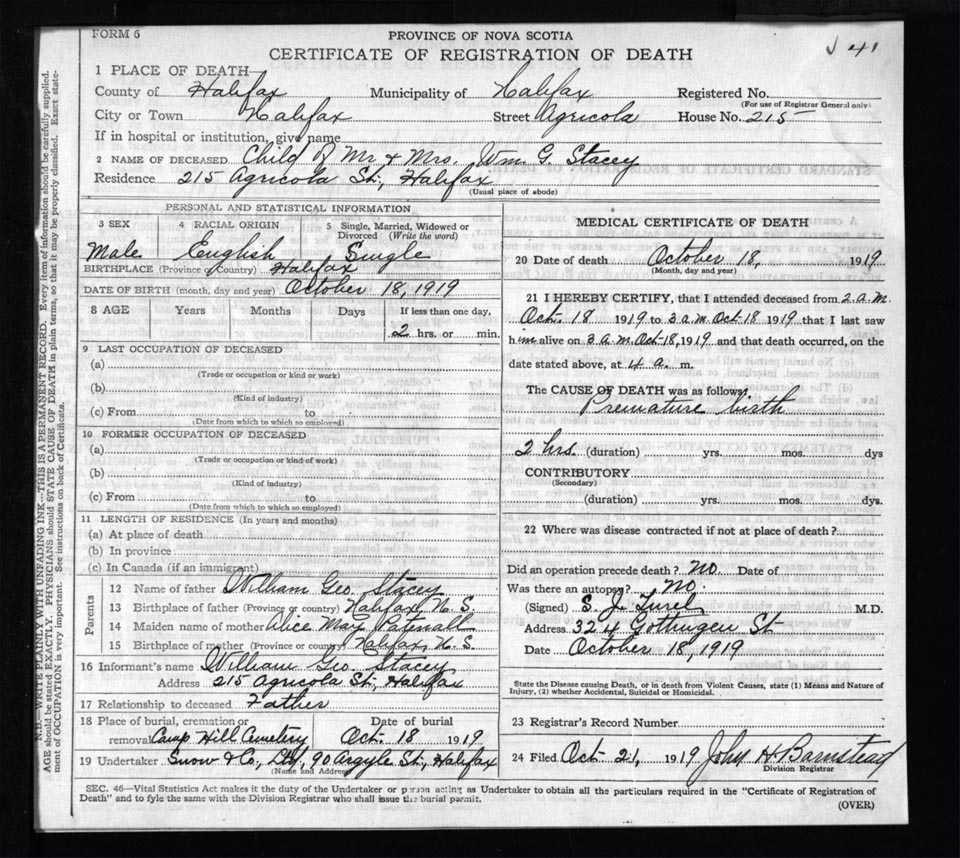 FORM 6
PROVINCE OF NOVA SCOTIA
CERTIFICATE OF REGISTRATION OF DEATH
41
1 PLACE OF DEATH—
County of Halifax Municipality of Halifax Registered No.
(For use of Registrar General only)
City or Town Halifax Street Agricola House No. 215
If in hospital or institution, give name
2 NAME OF DECEASED Child of Mr & Mrs. Wm. G. Stacey
Residence 215 Agricola St., Halifax
(Usual place of abode)
PERSONAL AND STATISTICAL INFORMATION
3 SEX 4 RACIAL ORIGIN 5 Single, Married, Widowed or Divorced (Write the word)
Male English Single
BIRTHPLACE (Province or Country) Halifax
DATE OF BIRTH (month, day and year) October 18, 1919
8 AGE Years Months Days If less than one day,
2 hrs. or min.
9 LAST OCCUPATION OF DECEASED
(a)
(Trade or occupation or kind or work)
(b)
(Kind of industry)
(c) From to
(Date from which to which so employed)
10 FORMER OCCUPATION OF DECEASED
(a)
(Trade or occupation or kind of work)
(b)
(Kind of industry)
(c) From to
(Date from which to which so employed)
11 LENGTH OF RESIDENCE (In years and months)
(a) At place of death
(b) In province
(c) In Canada (if an immigrant)
Parents
12 Name of father William Geo. Stacey
13 Birthplace of father (Province or country) Halifax, N. S.
14 Maiden name of mother Alice May
15 Birthplace of mother (Province or country) Halifax, N. S.
16 Informant's name William Geo. Stacey
Address 215 Agricola St., Halifax
17 Relationship to deceased Father
18 Place of burial, cremation or removal Camp Hill Cemetery Date of burial Oct. 18 1919
19 Undertaker Snow & Co., Ltd., 90 Argyle St., Halifax
(Name and Address)
MEDICAL CERTIFICATE OF DEATH
20 Date of death October 18, 1919
(Month, day and year)
21 I HEREBY CERTIFY, that I attended deceased from 2 a.m.
Oct. 18 1919 to 3 a.m. Oct 18 1919 that I last saw
him alive on 3 a.m. Oct 18, 1919 and that death occurred, on the
date stated above, at 4 a. m.
The CAUSE OF DEATH was as follows.
Premature birth
2 hrs. (duration) yrs. mos. dys
CONTRIBUTORY
(Secondary)
(duration) yrs. mos. dys.
22 Where was disease contracted if not at place of death?
Did an operation precede death? No Date of
Was there an autopsy? No.
(Signed) S. J. M.D.
Address 324 Gottingen St
Date October 18, 1919
State the Disease causing Death, or in death from Violent Causes, state (1) Means and Nature of
Injury, (2) whether Accidental, Suicidal or Homicidal.
23 Registrar's Record Number
24 Filed Oct 21, 1919 John H Barnstead
Division Registrar
SEC. 46—Vital Statistics Act makes it the duty of the Undertaker or person acting as Undertaker to obtain all the particulars required in the "Certificate of Registration of
Death" and to fyle the same with the Division Registrar who shall issue the burial permit.
(OVER)
N.B.—WRITE PLAINLY WITH UNFADING INK—THIS IS A PERMANENT RECORD. Every item of information should be carefully supplied.
AGE should be stated EXACTLY. PHYSICIANS should STATE CAUSE OF DEATH in plain terms, so that it may be properly classified. Exact state-
ment of OCCUPATION is very important. See instructions on back of Certificate.